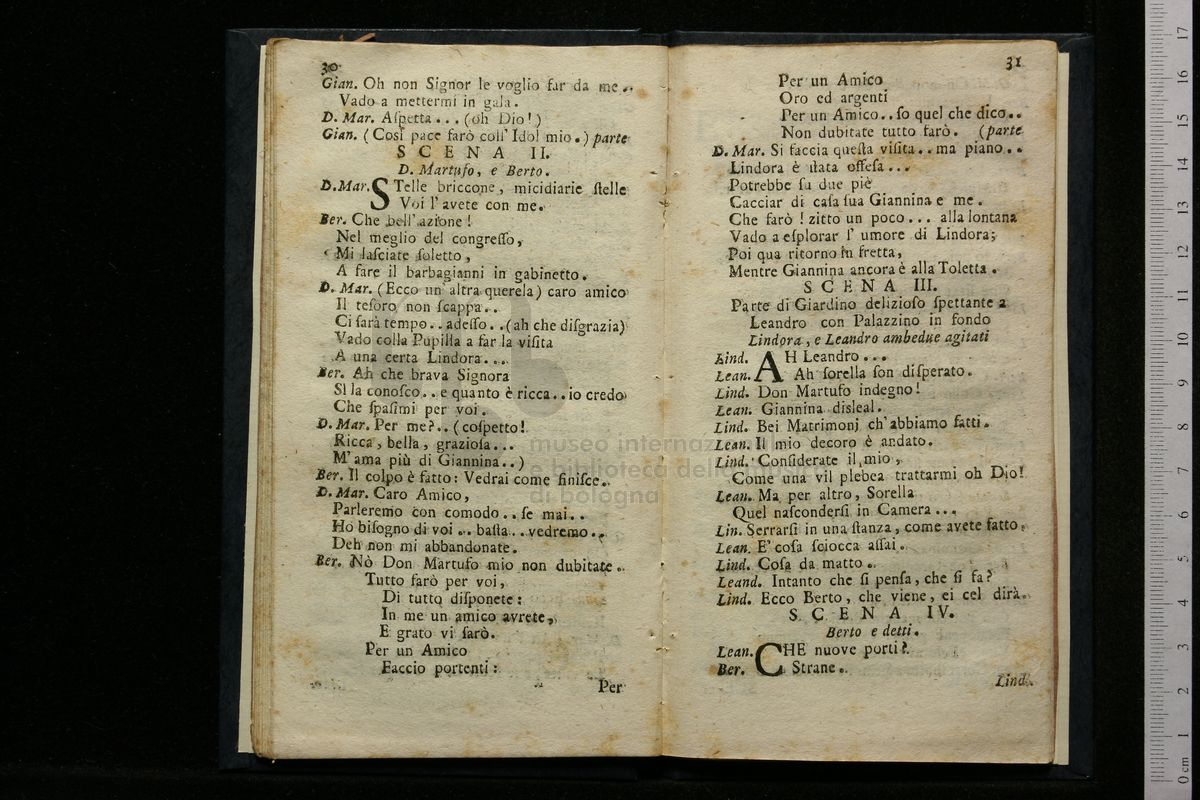 30
Gian. Oh non Signor le voglio far da me..
Vado a mettermi in gala.
D. Mar. Aſpetta... (oh Dio!)
Gian. (Così pace farò coll' Idol mio.) parte
SCENA II.
D. Martufo, e Berto.
D.Mar. STelle briccone, micidiarie ſtelle
Voi l'avete con me.
Ber. Che bell' azione!
Nel meglio del congreſſo,
Mi laſciate ſoletto,
A fare il barbagianni in gabinetto.
D. Mar. (Ecco un' altra querela) caro amico
Il teſoro non ſcappa..
Ci ſarà tempo.. adeſſo..(ah che diſgrazia)
Vado colla Pupilla a far la viſita
A una certa Lindora...
Ber. Ah che brava Signora
Sì la conoſco.. e quanto è ricca..io credo
Che ſpaſimi per voi.
D. Mar. Per me?.. (coſpetto!
Ricca, bella, grazioſa...
M'ama più di Giannina..)
Ber. Il colpo è fatto: Vedrai come finiſce..
D. Mar. Caro Amico,
Parleremo con comodo..ſe mai..
Ho biſogno di voi .. baſta..vedremo..
Deh non mi abbandonate.
Ber. Nò Don Martufo mio non dubitate..
Tutto farò per voi,
Di tutto diſponete:
In me un amico avrete,
E grato vi ſarò.
Per un Amico
Faccio portenti:
Per
31
Per un Amico
Oro ed argenti
Per un Amico..ſo quel che dico..
Non dubitate tutto farò. (parte
D. Mar. Si faccia queſta viſita..ma piano..
Lindora è ſtata offeſa...
Potrebbe ſu due piè
Cacciar di caſa ſua Giannina e me.
Che farò! zitto un poco... alla lontana
Vado a eſplorar l' umore di Lindora;
Poi qua ritorno in fretta,
Mentre Giannina ancora è alla Toletta.
SCENA III.
Parte di Giardino delizioſo ſpettante a
Leandro con Palazzino in fondo
Lindora, e Leandro ambedue agitati
Lind. AH Leandro...
Lean. Ah ſorella ſon diſperato.
Lind. Don Martufo indegno!
Lean. Giannina disleal.
Lind. Bei Matrimonj ch'abbiamo fatti.
Lean. Il mio decoro è andato.
Lind. Conſiderate il mio,
Come una vil plebea trattarmi oh Dio!
Lean. Ma per altro, Sorella
Quel naſconderſi in Camera...
Lin. Serrarſi in una ſtanza, come avete fatto.
Lean. E' coſa ſciocca aſſai.
Lind. Coſa da matto.
Leand. Intanto che ſi penſa, che ſi fa?
Lind. Ecco Berto, che viene, ei cel dirà.
SCENA IV.
Berto e detti.
Lean. CHE nuove porti?
Ber. Strane.
Lind.
museo internazionale
e biblioteca della musica
di bologna
0 cm 1 2 3 4 5 6 7 8 9 10 11 12 13 14 15 16 17